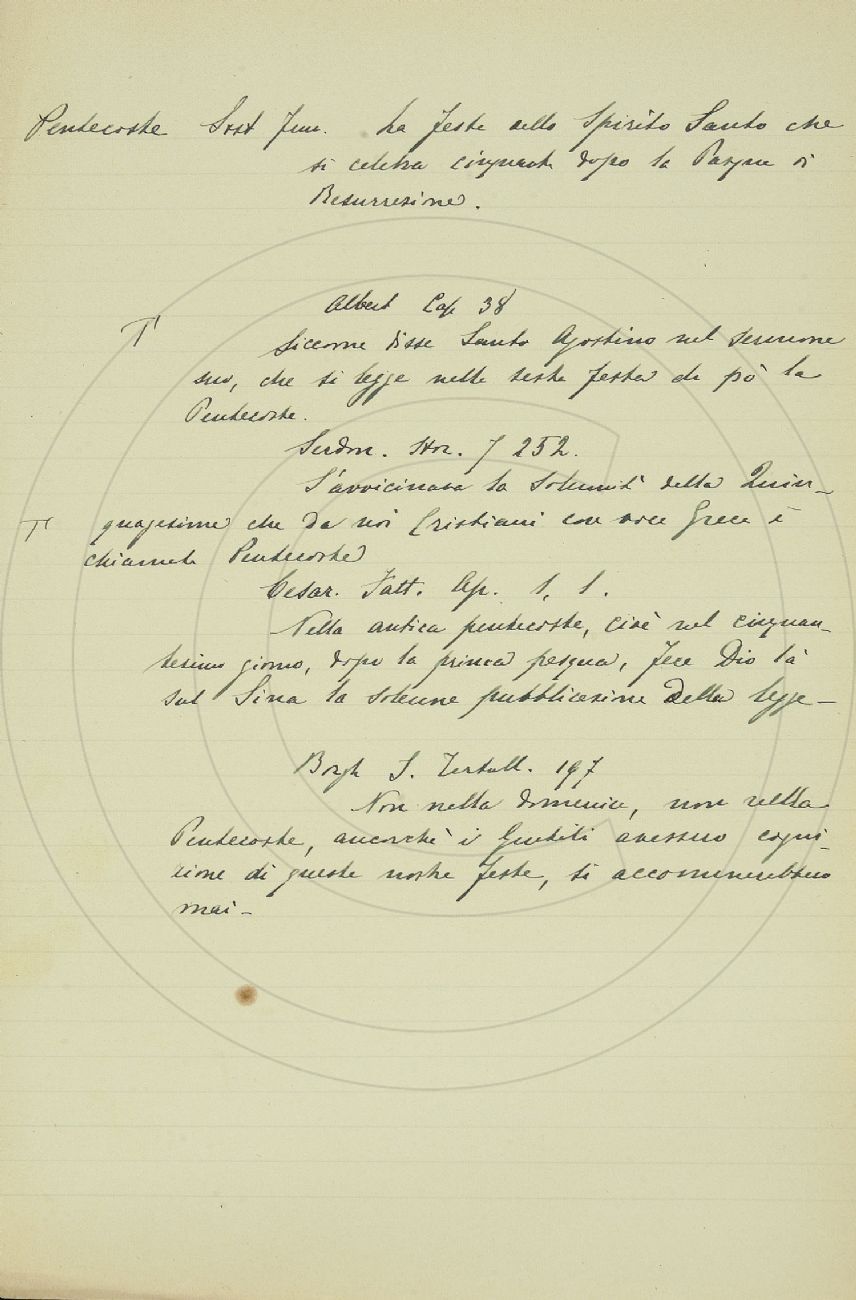 Pentecoste Sost fem. La festa dello Spirito Santo che
si celebra cinquanta dopo la Pasqua di
Resurrezione.
Albert Cap 38
T Siccome disse Santo Agostino nel sermone
suo, che si legge nella sesta festa da po' la
Pentecoste.
Serdon. Stor. 7 252.
S'avvicinava la solennità della Quin-
T quagesima che da noi Cristiani con voce Greca è
chiamata Pentecoste
Cesar. Fatt. Ap. 1, 1.
Nella antica pentecoste, cioè nel cinquan-
tesimo giorno, dopo la prima pasqua, fece Dio là
sul Sina la solenne pubblicazione della legge -
Borgh S. Tertull. 197
Non nella domenica, non nella
Pentecoste, ancorchè i Gentili avessero cogni-
zione di queste nostre feste, si accomunerebbero
mai -